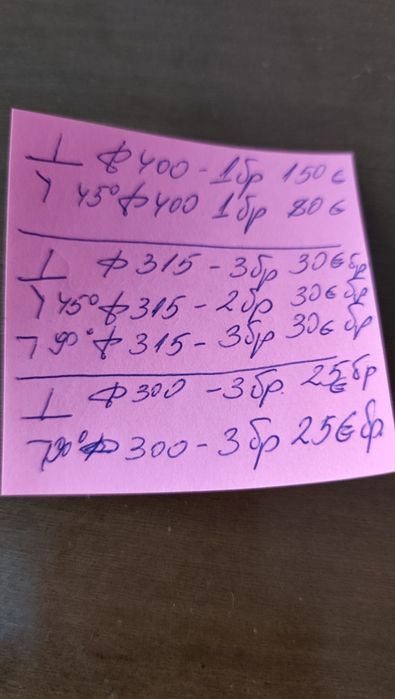 ⊥ ф400 - 1бр 150€
45° ф400 1бр 80€
⊥ ф315 - 3бр 30€бр
45° ф315 - 2бр 30€ бр
90° ф315 - 3бр 30€ бр
⊥ ф300 - 3бр. 25€бр
90° ф300 - 3бр 25€бр.